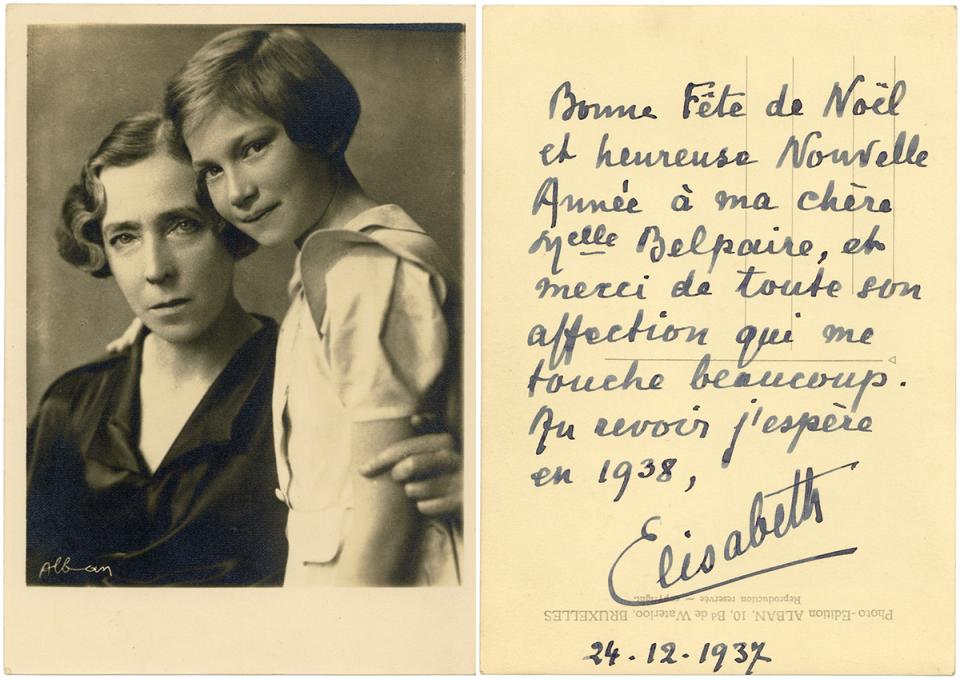 Alban
Bonne Fête de Noël
et heureuse Nouvelle
Année à ma chère
Myelle Belpaire, et
merci de toute son
affection qui me
touche beaucoup.
Au revoir j'espère
en 1938,
Elisabeth
Reproduction réservée — copyright.
Photo-Edition ALBAN, 10, Bd de Waterloo, BRUXELLES
24.12.1937